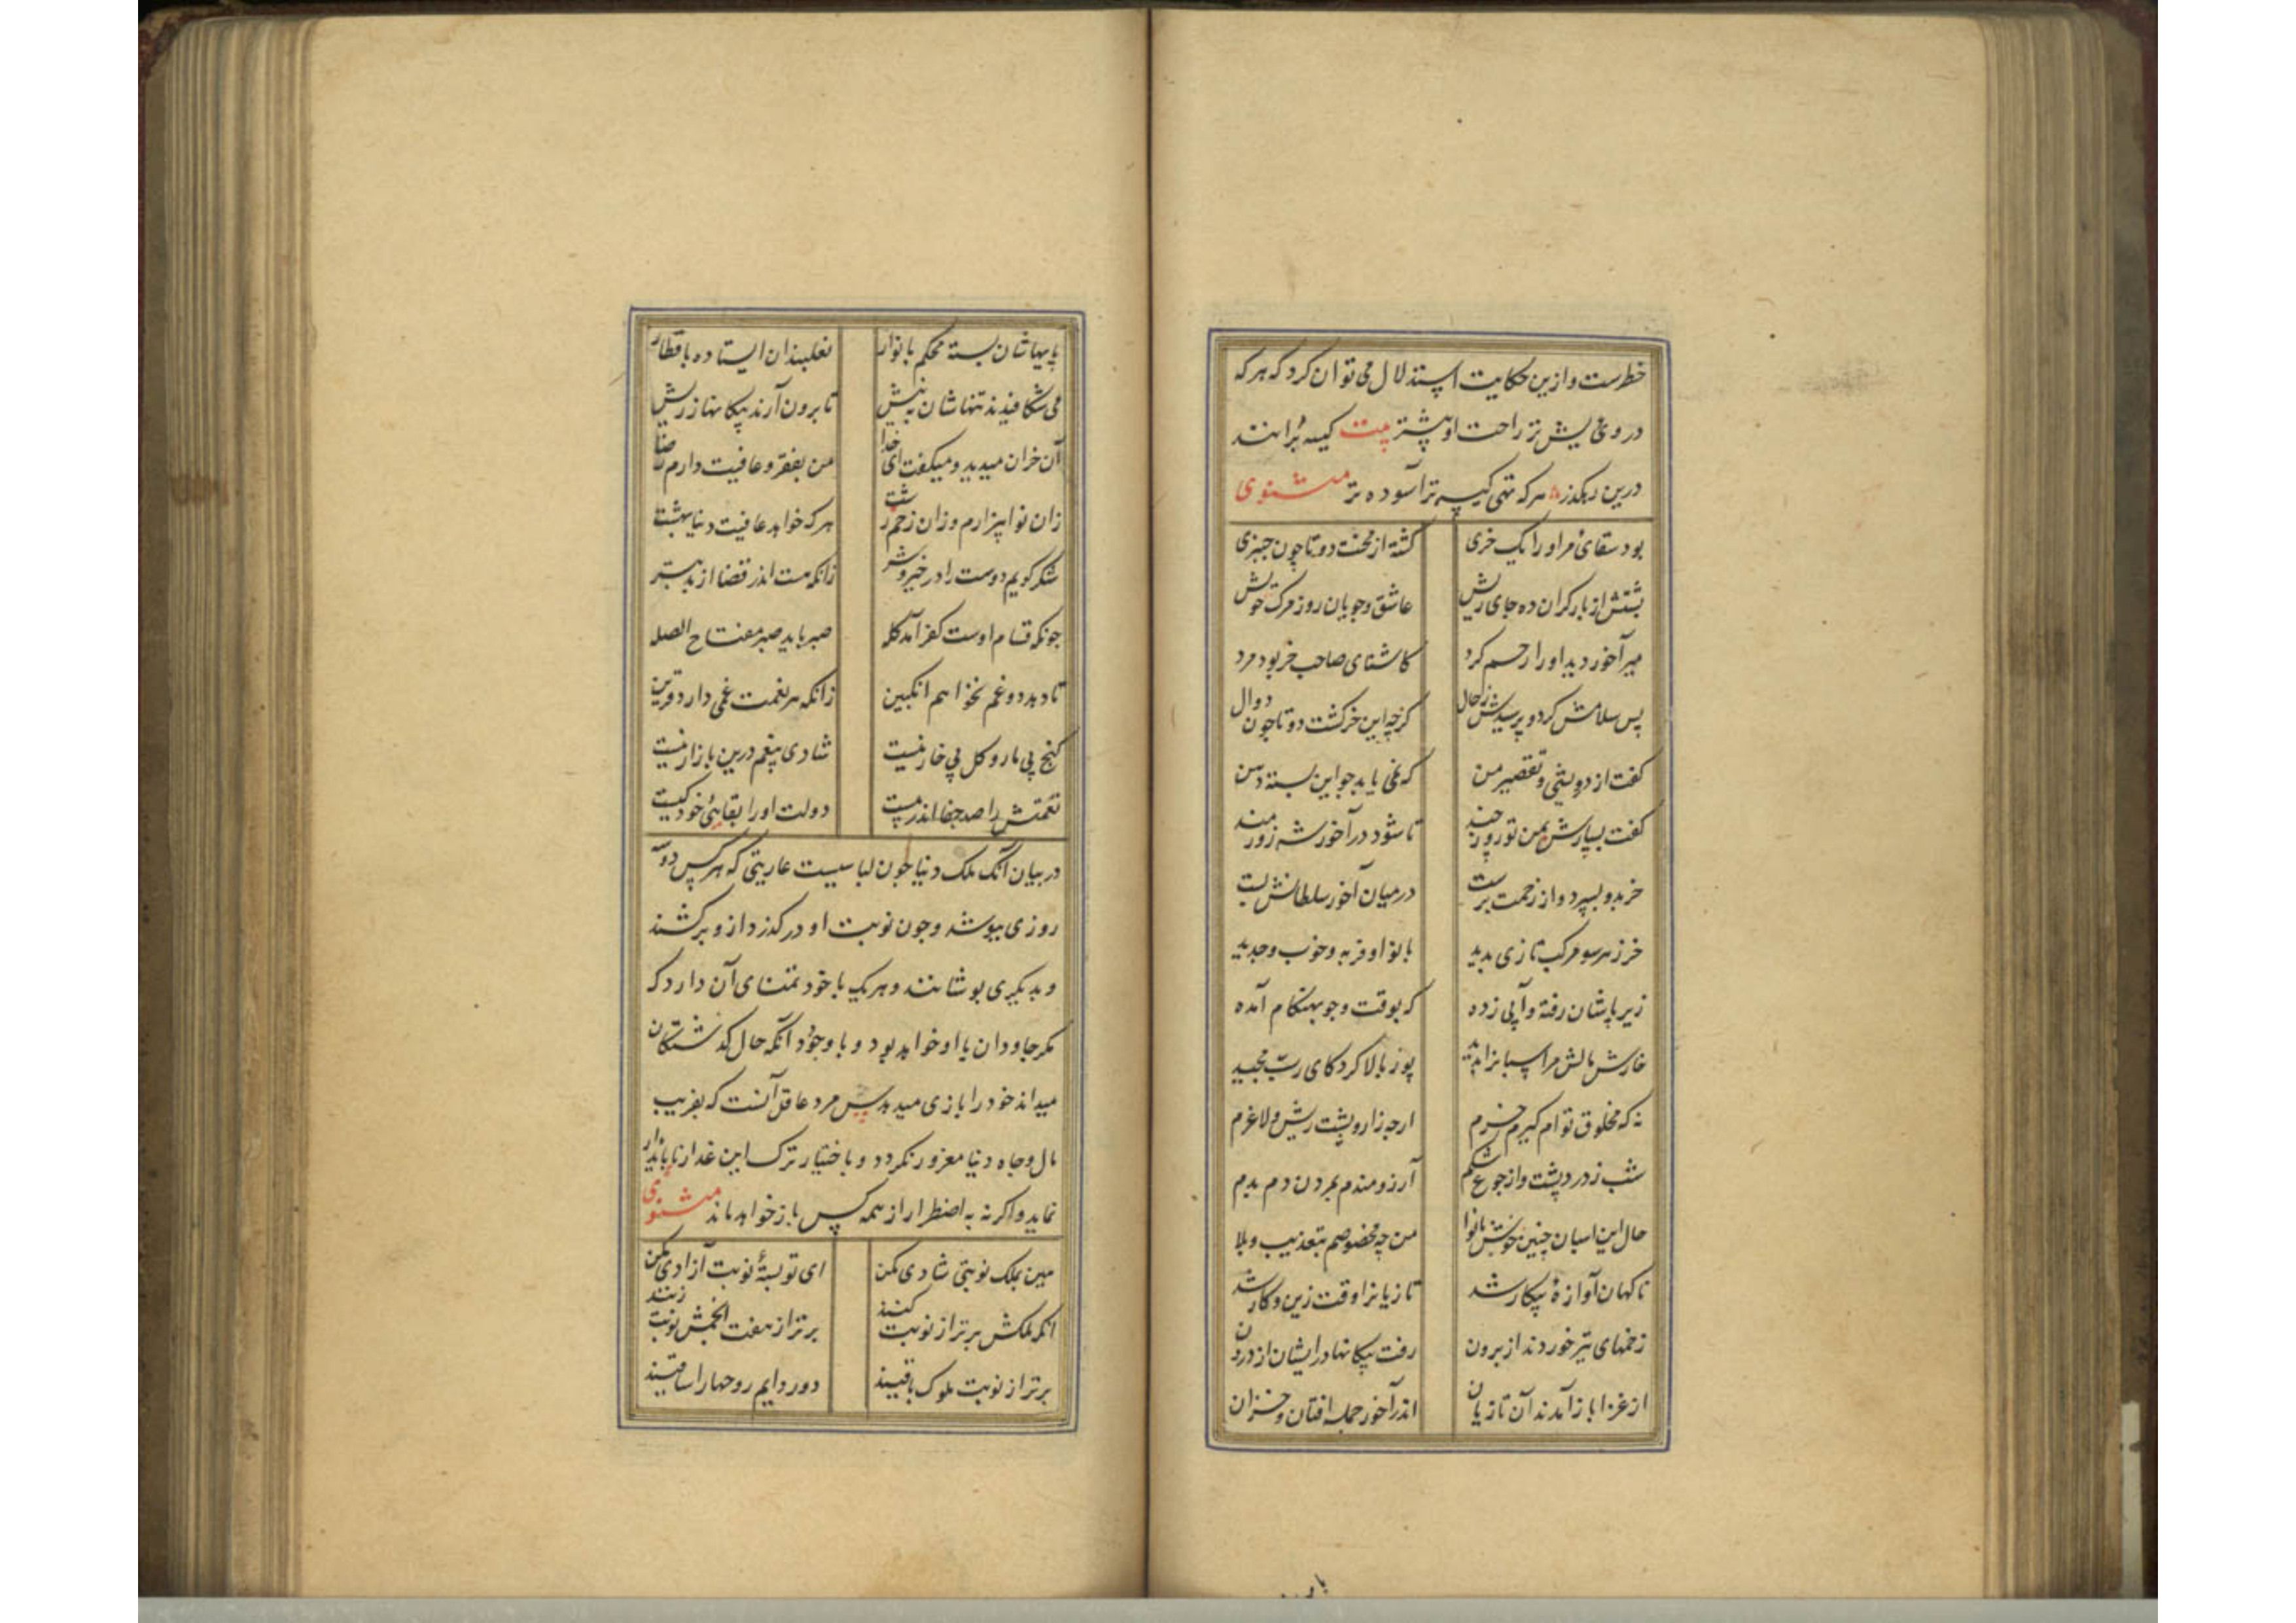 خطرست و ازین حکایت استدلال می توان کرد که هر که
درویش تر راحت او بیشتر بیت کیسه بُرانند
درین رهکذر هر که تهی کیسه تر آسوده تر مثنوی
بود سقای مر او را یک خری کشته از محنت دوتا چون چنبری
پشتش از بار کران ده جای ریش عاشق و جویان روز مرک خویش
میر آخور دید او را رحم کرد کاشنای صاحب خر بود مرد
پس سلامش کرد و پرسیدش ز حال کز چه این خر کشت دوتا چون دوال
کفت از درویشی و تقصیر من که نمی یابد جو این بسته دهن
کفت بسپارش بمن تو روز چند تا شود در آخور شه زورمند
خر بدو بسپرد و از زحمت برست در میان آخور سلطانش بست
خر ز هر سو مرکب تازی بدید با نوا و فربه و خوب و جدید
زیر پاشان رفته و آبی زده که بوقت و جو بهنکام آمده
خارش مالش مر اسبانرا بدید پوز بالا کرد کای ربّ مجید
نه که مخلوق توام کیرم خرم از چه زار و پشت ریش و لاغرم
شب ز درد پشت و از جوع شکم آرزومندم بمردن دم بدم
حال این اسبان چنین خوش با نوا من چه مخصوصم بتعذیب و بلا
ناکهان آوازهٔ پیکار شد تازیانرا وقت زین و کار شد
زخمهای تیر خوردند از برون رفت پیکانها در ایشان از درون
از غزا باز آمدند آن تازیان اندر آخور جمله افتان و خیزان
پایهاشان بسته محکم با نوار نعلبندان ایستاده با قطار
می شکافیدند تنهاشان به نیش تا برون آرند پیکانها ز ریش
آن خران میدید و میکفت ای خدا من بفقر و عافیت دارم رضا
زان نوا بیزارم و زان زخم زشت هر که خواهد عافیت دنیا بهشت
شکر کویم دوست را در خیر و شر زانکه هست اندر قضا از بد بتر
چونکه قسام اوست کفر آمد کله صبر باید صبر مفتاح الصله
تا دهد دوغم نخواهم انکبین زانکه هر نعمت غمی دارد قرین
کنج بی مار و کل بی خار نیست شادی بیغم درین بازار نیست
نعمتش را صد جفا اندر پیست دولت او را بقایی خود کیست
در بیان آنک ملک دنیا چون لباسیست عاریتی که هر کس دو سه
روزی بپوشد و چون نوبت او در کذرد از و برکشند
و بدیکری پوشانند و هر یک با خود تمنای آن دارد که
مکر جاودان با او خواهد بود و با وجود آنکه حال کذشتکان
میداند خود را بازی میدهد پس مرد عاقل آنست که بفریب
مال و جاه دنیا مغرور نکردد و باختیار ترک این غدار ناپایدار
نماید و اکر نه به اضطرار از همه کس باز خواهد ماند مثنوی
هین بملک نوبتی شادی مکن ای تو بستهٔ نوبت آزادی مکن
انکه ملکش برتر از نوبت کنند برتر از هفت انجمش نوبت زنند
برتر از نوبت ملوک باقیند دور دایم روحها را ساقیند